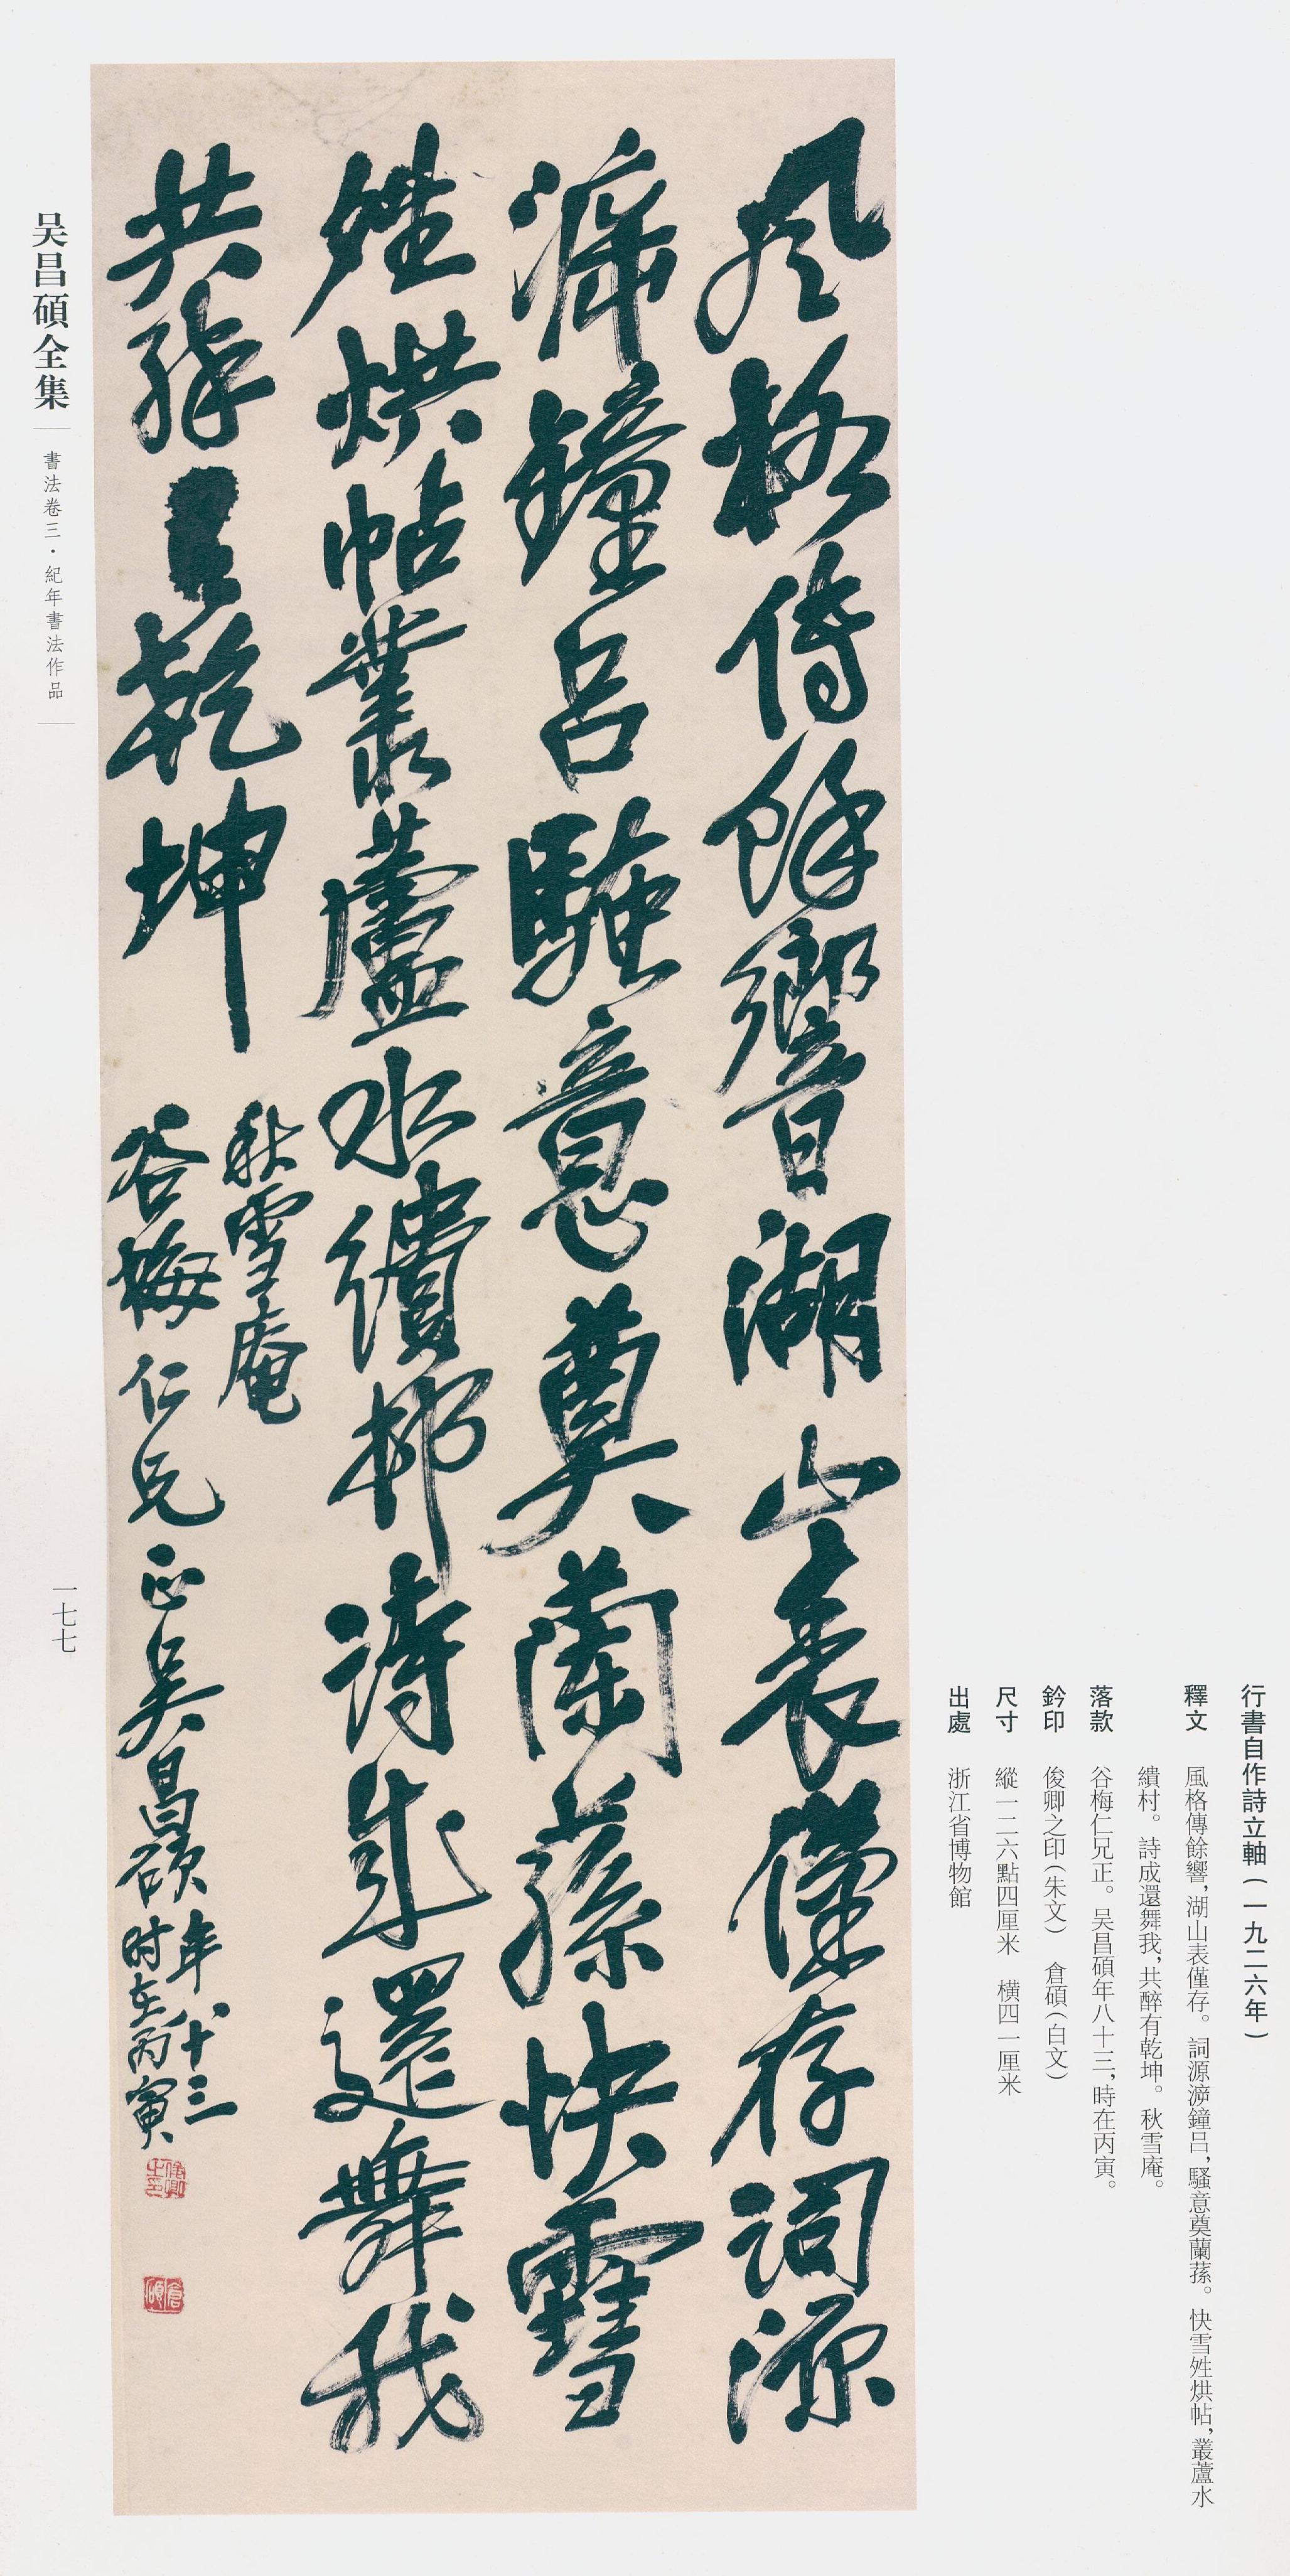 行書自作詩立軸（一九二六年）
釋文 風格傳餘響，湖山表僅存。詞源㴑鐘吕，騷意奠蘭蓀。快雪甡烘帖，叢蘆水
繢村。詩成還舞我，共醉有乾坤。秋雪庵。
落款 谷梅仁兄正。吴昌碩年八十三，時在丙寅。
鈐印 俊卿之印（朱文） 倉碩（白文）
尺寸 縱一二六點四厘米 橫四一厘米
出處 浙江省博物館
風格傳餘響湖山表僅存詞源
㴑鐘吕騷意奠蘭蓀快雪
甡烘帖叢蘆水繢邨詩成還舞我
共醉有乾坤
秋雪庵
谷梅仁兄正吴昌碩年八十三
时在丙寅
俊卿之印
倉碩
吴昌碩全集
書法卷三·紀年書法作品
一七七